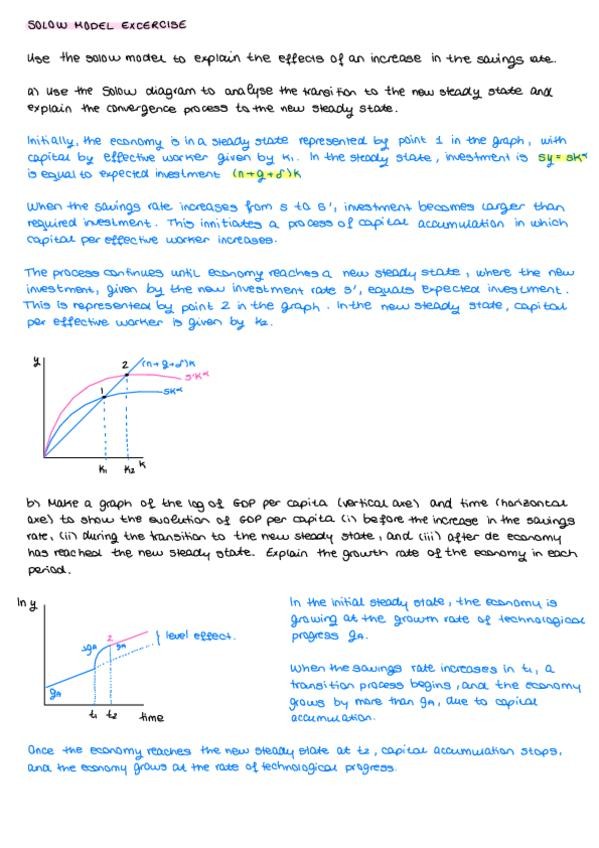 SOLOW MODEL EXCERCISE
Use the solow model to explain the effects of an increase in the savings rate.
a) Use the Solow diagram to analyse the transition to the new steady state and
explain the convergence process to the new steady state.
Initially, the economy is in a steady state represented by point 1 in the graph, with
capital by effective worker given by K₁. In the steady state, investment is sy = sk^α
is equal to expected investment (n+g+δ)k
When the savings rate increases from s to s', investment becomes larger than
required investment. This innitiates a process of capital accumulation in which
capital per effective worker increases.
The process continues until economy reaches a new steady state, where the new
investment, given by the new investment rate s', equals expected investment.
This is represented by point 2 in the graph. In the new steady state, capital
per effective worker is given by k₂.
y
2
(n+g+δ)k
s'k^α
1
sk^α
K₁
K₂
K
b) Make a graph of the log of GDP per capita (vertical axe) and time (horizontal
axe) to show the evolution of GDP per capita (i) before the increase in the savings
rate, (ii) during the transition to the new steady state, and (iii) after de economy
has reached the new steady state. Explain the growth rate of the economy in each
period.
ln y
2
gA
level effect.
gA
t₁
t₂
time
In the initial steady state, the economy is
growing at the growth rate of technological
progress gA.
When the savings rate increases in t₁, a
transition process begins, and the economy
grows by more than gA, due to capital
accumulation.
Once the economy reaches the new steady state at t₂, capital accumulation stops,
and the economy grows at the rate of technological progress.